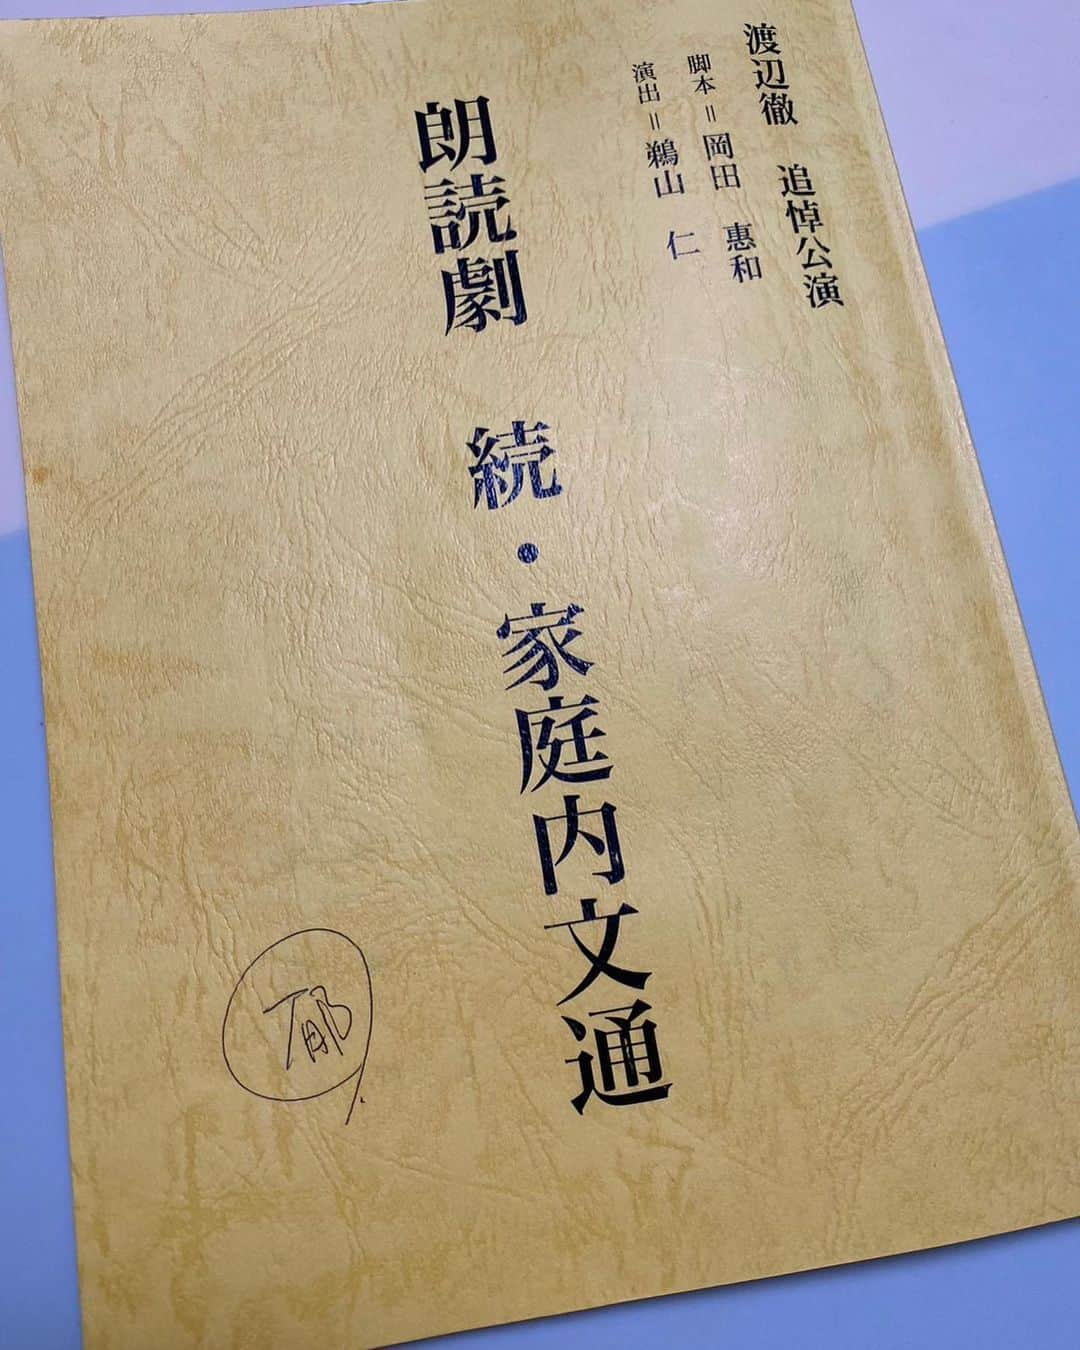 渡辺徹 追悼公演
脚本＝岡田 惠和
演出＝鵜山 仁
朗読劇 続・家庭内文通
郁